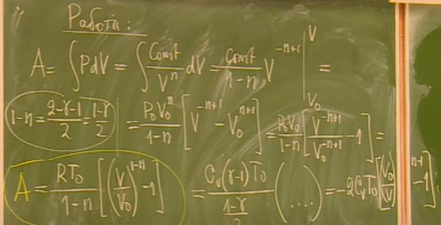 Работа:
A = ∫PdV = ∫ Const/Vⁿ dV = Const/1-n V^-n+1 |_V₀^V =
1-n = 2-γ-1/2 = 1-γ/2 = P₀V₀ⁿ/1-n [V^-n+1 - V₀^-n+1] = P₀V₀/1-n [V^-n+1/V₀^-n+1 - 1] =
A = RT₀/1-n [(V/V₀)^1-n - 1] = Cᵥ(γ-1)T₀/1-γ/2 (...) = -2CᵥT₀[(V₀/V)^n-1 - 1]